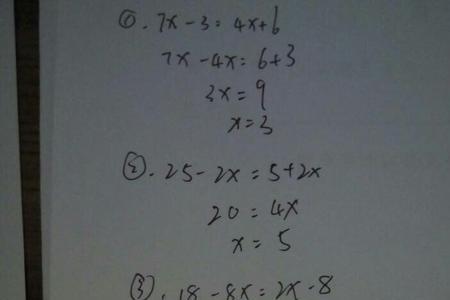 ①. 7x-3=4x+6
7x-4x=6+3
3x=9
x=3
②. 25-2x=5+2x
20=4x
x=5
③. 18-8x=2x-8